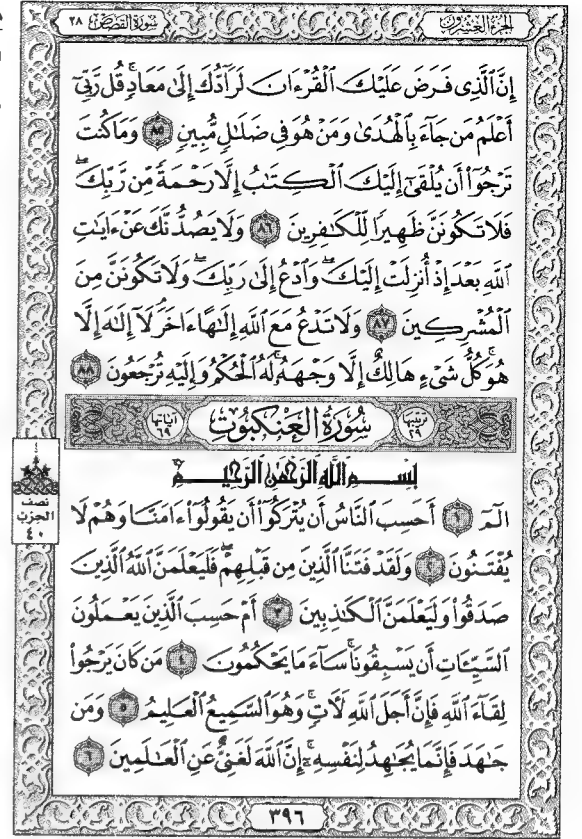 الجزء العشرون
سورة القصص ٢٨
إِنَّ ٱلَّذِى فَرَضَ عَلَيْكَ ٱلْقُرْءَانَ لَرَآدُّكَ إِلَىٰ مَعَادٍۚ قُل رَّبِّىٓ
أَعْلَمُ مَن جَآءَ بِٱلْهُدَىٰ وَمَنْ هُوَ فِى ضَلَٰلٍ مُّبِينٍ ٨٥ وَمَا كُنتَ
تَرْجُوٓا۟ أَن يُلْقَىٰٓ إِلَيْكَ ٱلْكِتَٰبُ إِلَّا رَحْمَةً مِّن رَّبِّكَۖ
فَلَا تَكُونَنَّ ظَهِيرًا لِّلْكَٰفِرِينَ ٨٦ وَلَا يَصُدُّنَّكَ عَنْ ءَايَٰتِ
ٱللَّهِ بَعْدَ إِذْ أُنزِلَتْ إِلَيْكَۖ وَٱدْعُ إِلَىٰ رَبِّكَۖ وَلَا تَكُونَنَّ مِنَ
ٱلْمُشْرِكِينَ ٨٧ وَلَا تَدْعُ مَعَ ٱللَّهِ إِلَٰهًا ءَاخَرَۘ لَآ إِلَٰهَ إِلَّا
هُوَۚ كُلُّ شَىْءٍ هَالِكٌ إِلَّا وَجْهَهُۥۚ لَهُ ٱلْحُكْمُ وَإِلَيْهِ تُرْجَعُونَ ٨٨
ترتيبها ٢٩ سورة العنكبوت آياتها ٦٩
بِسْمِ ٱللَّهِ ٱلرَّحْمَٰنِ ٱلرَّحِيمِ
الٓمٓ ١ أَحَسِبَ ٱلنَّاسُ أَن يُتْرَكُوٓا۟ أَن يَقُولُوٓا۟ ءَامَنَّا وَهُمْ لَا
يُفْتَنُونَ ٢ وَلَقَدْ فَتَنَّا ٱلَّذِينَ مِن قَبْلِهِمْۖ فَلَيَعْلَمَنَّ ٱللَّهُ ٱلَّذِينَ
صَدَقُوا۟ وَلَيَعْلَمَنَّ ٱلْكَٰذِبِينَ ٣ أَمْ حَسِبَ ٱلَّذِينَ يَعْمَلُونَ
ٱلسَّيِّـَٔاتِ أَن يَسْبِقُونَاۚ سَآءَ مَا يَحْكُمُونَ ٤ مَن كَانَ يَرْجُوا۟
لِقَآءَ ٱللَّهِ فَإِنَّ أَجَلَ ٱللَّهِ لَءَاتٍۚ وَهُوَ ٱلسَّمِيعُ ٱلْعَلِيمُ ٥ وَمَن
جَٰهَدَ فَإِنَّمَا يُجَٰهِدُ لِنَفْسِهِۦٓۚ إِنَّ ٱللَّهَ لَغَنِىٌّ عَنِ ٱلْعَٰلَمِينَ ٦
نصف
الحزب
٤٠
٣٩٦